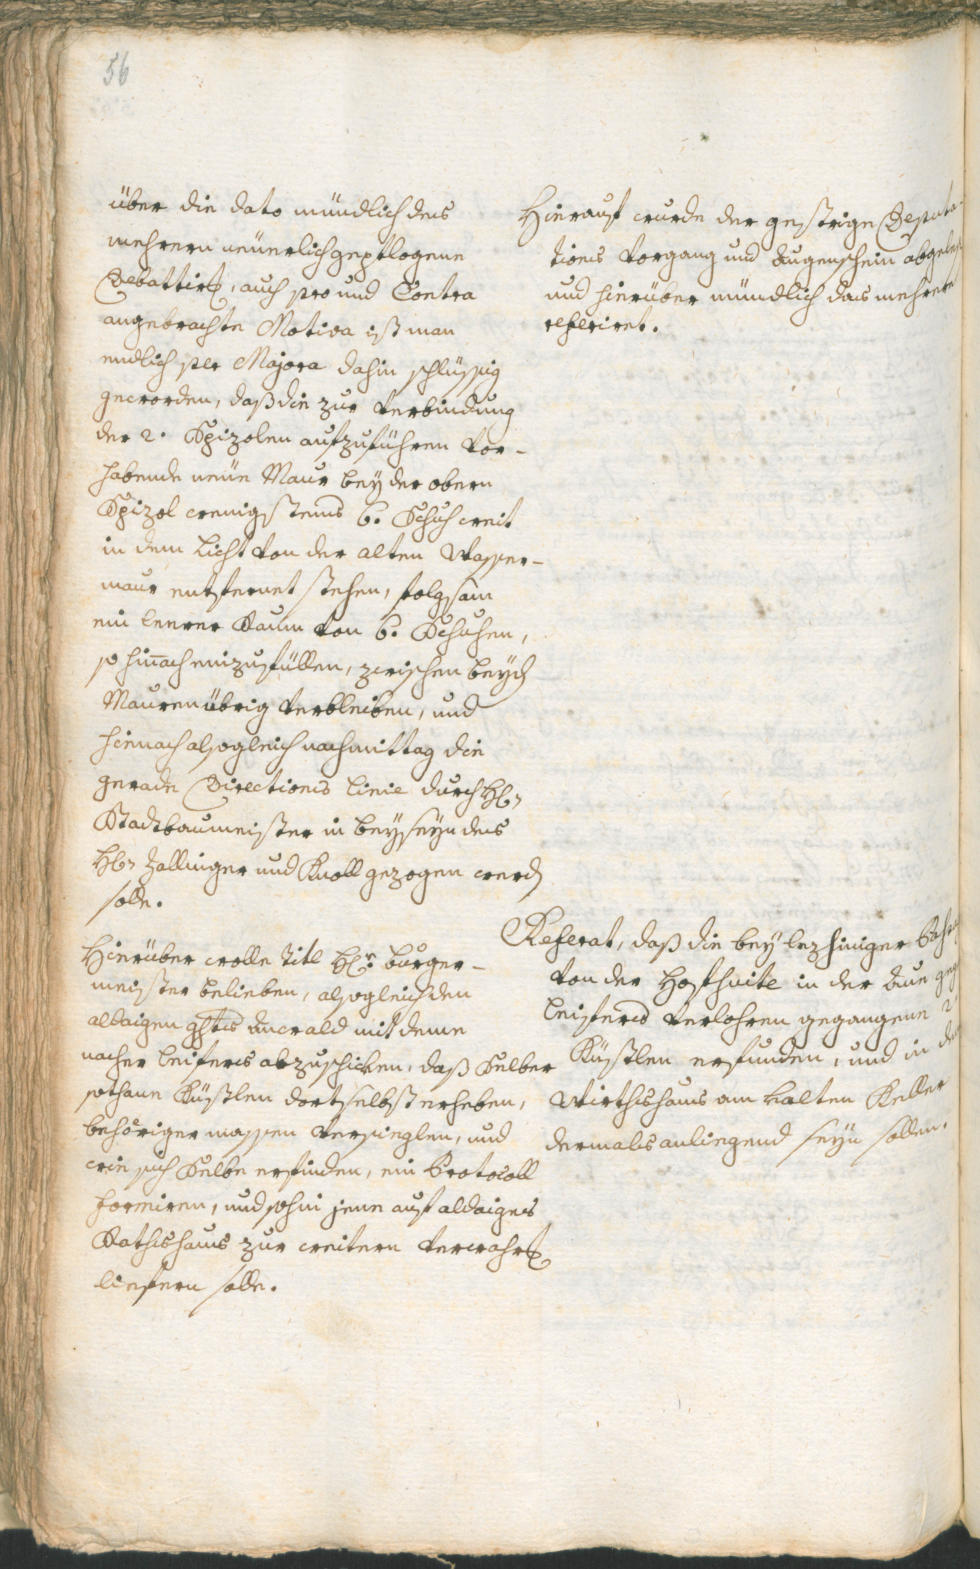 56
über die dato mündlich des
mehrern neüerlich gepflogene
Debattirg, auch pro und Contra
angebrachte Motiva ist man
endlich per Majora dahin schlüssig
geworden, daß die zur Verbindung
der 2. Spizolen aufzuführen vor-
habende neüe Maur bey der obern
Spizol wenigstens 6. Schuh weit
in dem Licht von der alten Wasser-
maur entfernet stehen, folgsam
ein leerer Raum von 6. Schuhen,
so hinach einzufüllen, zwischen beyd
Mauren übrig verbleiben, und
hinnach alsogleich nachmittag die
gerade Directions Linie durch H.
Stadtbaumeister in beyseyn des
H. Zallinger und Knoll gezogen werd
solle.
Hierüber wolle Titl H. Burger-
meister belieben, alsogleich den
aldaigen Anwald mit deme
nacher Leifers abzuschicken, daß Selber
sothane Küstlen dortselbst erheben,
behöriger massen versieglen, und
wie sich Selbe erfinden, ein Protocoll
formiren, und sohin jene auf aldaiges
Rathshaus zur weitern verwahrg
liefern solle.
Hierauf wurde der gestrige Deputa-
tions Vorgang und Augenschein
und hierüber mündlich das mehrere
referiret.
Referat, daß die bey lezhiniger
von der Hofsuite in der Aue
Leifers verlohren gegangene 2
Küstlen erfunden, und in
Wirthshaus am kalten Keller
dermals anliegend seyn sollen.